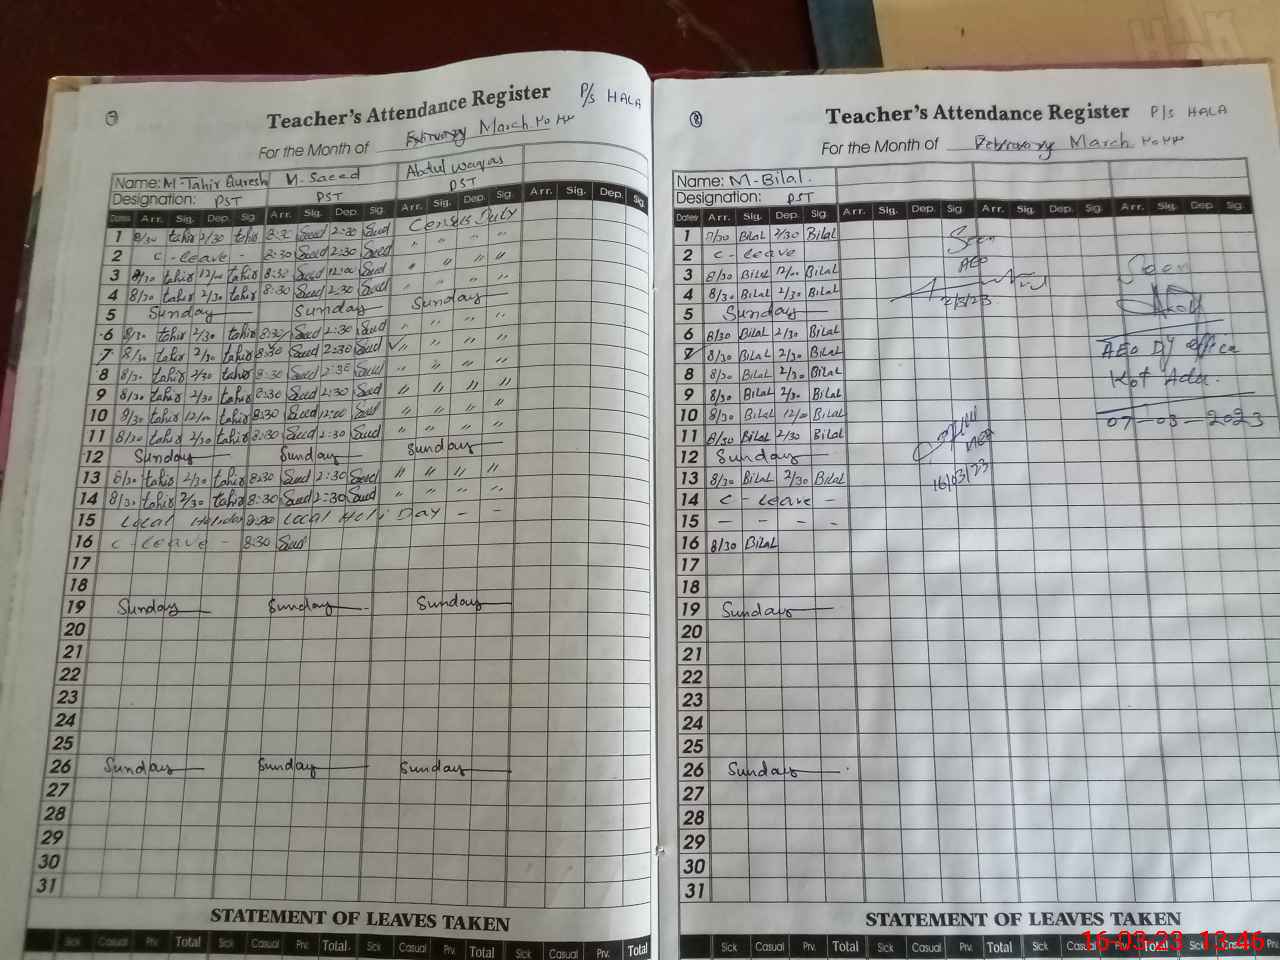 7
Teacher's Attendance Register P/S HALA
For the Month of February March ۲۰۲۳
Name: M-Tahir Qureshi M. Saeed Abdul waqas
Designation: PST PST PST
Dates Arr. Sig. Dep. Sig. Arr. Sig. Dep. Sig. Arr. Sig. Dep. Sig. Arr. Sig. Dep. Sig.
1 8/30 tahir 2/30 tahir 8:30 Saed 2:30 Saed Census Duty
2 C-leave - 8:30 Saed 2:30 Saed " " " "
3 8/30 tahir 12/00 tahir 8:30 Saed 12:00 Saed " " " "
4 8/30 tahir 2/30 tahir 8:30 Saed 2:30 Saed " " " "
5 Sunday Sunday Sunday
6 8/30 tahir 2/30 tahir 8:30 Saed 2:30 Saed " " " "
7 8/30 tahir 2/30 tahir 8:30 Saed 2:30 Saed " " " "
8 8/30 tahir 2/30 tahir 8:30 Saed 2:30 Saed " " " "
9 8/30 tahir 2/30 tahir 8:30 Saed 2:30 Saed " " " "
10 8/30 tahir 12/00 tahir 8:30 Saed 12:00 Saed " " " "
11 8/30 tahir 2/30 tahir 8:30 Saed 2:30 Saed " " " "
12 Sunday Sunday Sunday
13 8/30 tahir 2/30 tahir 8:30 Saed 2:30 Saed " " " "
14 8/30 tahir 2/30 tahir 8:30 Saed 2:30 Saed " " " "
15 Local Holiday 8:30 Local Holi Day - -
16 C-leave - 8:30 Saed
17
18
19 Sunday Sunday Sunday
20
21
22
23
24
25
26 Sunday Sunday Sunday
27
28
29
30
31
STATEMENT OF LEAVES TAKEN
Sick Casual Prv. Total Sick Casual Prv. Total. Sick Casual Prv. Total Sick Casual Prv. Total
8
Teacher's Attendance Register P/S HALA
For the Month of February March ۲۰۲۳
Name: M-Bilal.
Designation: PST
Dates Arr. Sig. Dep. Sig. Arr. Sig. Dep. Sig. Arr. Sig. Dep. Sig. Arr. Sig. Dep. Sig.
1 8/30 Bilal 2/30 Bilal
2 C-leave
3 8/30 Bilal 12/00 Bilal
4 8/30 Bilal 2/30 Bilal
5 Sunday
6 8/30 Bilal 2/30 Bilal
7 8/30 Bilal 2/30 Bilal
8 8/30 Bilal 2/30 Bilal
9 8/30 Bilal 2/30 Bilal
10 8/30 Bilal 12/00 Bilal
11 8/30 Bilal 2/30 Bilal
12 Sunday
13 8/30 Bilal 2/30 Bilal
14 C - leave -
15 - - - -
16 8/30 Bilal
17
18
19 Sunday
20
21
22
23
24
25
26 Sunday
27
28
29
30
31
Seen
AEO
2/3/23
Seen
AEO Dy office
Kot Adu.
07-03-2023
16/03/23
STATEMENT OF LEAVES TAKEN
Sick Casual Prv. Total Sick Casual Prv. Total Sick Casual Prv. Total Sick Casual Prv.
16-03-23 13:46